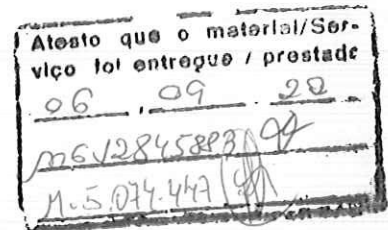 Atesto que o material/Ser-
viço foi entregue / prestado
06 , 09 . 20
M.5.074.447